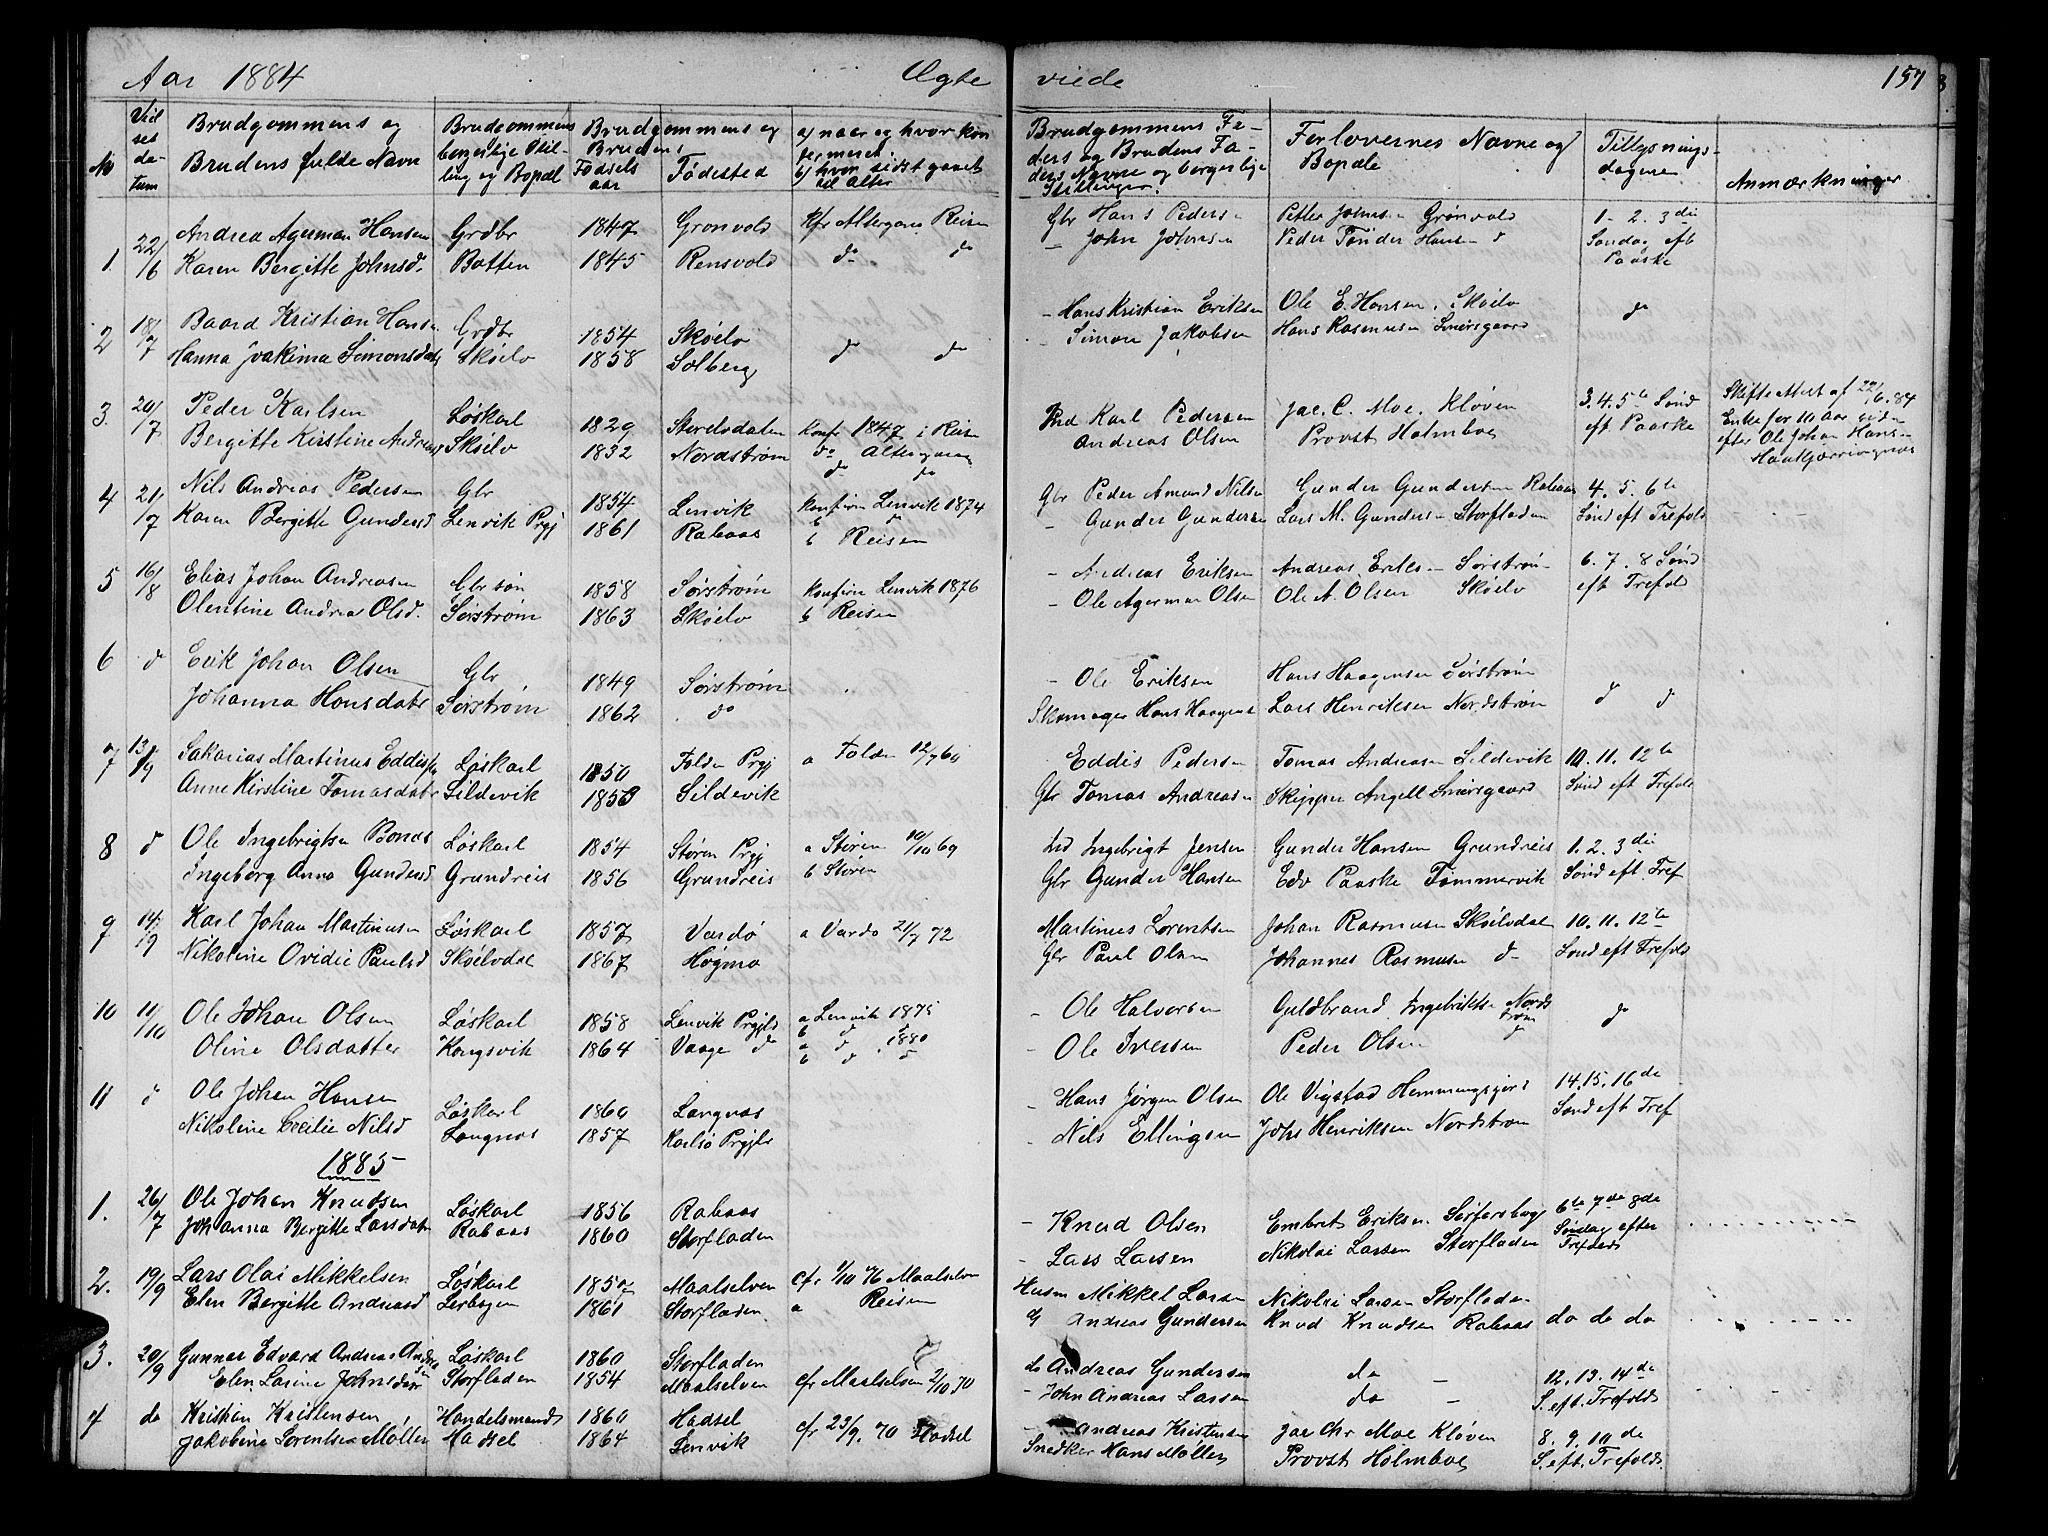 Aar 1884 Ægte viede 157
No
Vielsesdatum
Brudgommens og Brudens fulde Navn
Brudgommens borgerlige Stilling og Bopæl
Brudgommens og Brudens
Fødselsaar
Fødested
a) naar og hvor konfirmeret
b) hvor sidst gaaet til Alter
Brudgommens Faders og Brudens Faders Navne og borgerlige Stillinger.
Forlovernes Navne og Bopæle
Tillysningsdagene
Anmærkninger
1. 22/6 Andrea Agerman Hansen Grdbr 1847 Grønvold Kfr Altergang Reisen Gbr Hans Peders- Petter Johnsen Grønvold 1- 2. 3die
Karen Bergitte Johnsd. Botten 1845 Rensvold do do - John Johnsen Peder Tønder Hansen d Søndag eft Paaske
2 18/7 Baard Kristian Hans- Grdbr 1854 Skøelv - Hans Kristian Eriksen Ole E. Hansen. Skøelv do
Hanna Joakima Simonsdatr Skøelv 1858 Solberg do do - Simon Jakobsen Hans Rasmusen Smørsgaard
3. 20/7 Peder Karlsen Løskarl 1829 Stordsdalen Konfr 1847 i Reisen Ind Karl Pedersen Jac. C. Moe. Kløven 3. 4. 5te Sønd Skifte Attest af 22/6. 84
Bergitte Kirstine Andreas Skøelv 1832 Nordstrøm do Altergang Andreas Olsen Provst Holmboe eft Paaske Enke for 11 Aar siden
do do efter Ole Johan Hans-
4 21/7 Nils Andreas Pedersen Gbr 1854 Lenvik Konfirm Lenvik 1874 Gbr Peder Amund Nilsen Gunder Gundersen Rabaas 4. 5. 6te
Karen Bergitte Gundersd Lenvik Prgj 1861 Rabaas b Reisen - Gunder Gundersen Lars M. Gunders- Storfladen Sønd eft Trefold
5 16/8 Elias Johan Andreasen Gbr søn 1858 Sørstrøm Konfirm Lenvik 1876 - Andreas Eriksen Andreas Eriks- Sørstrøm 6. 7. 8 Sønd
Olentine Andrea Olsd. Sørstrøm 1863 Skøelv b Reisen - Ole Agerman Olsen Ole A. Olsen Skøelv eft Trefold
6 d Erik Johan Olsen Gbr 1849 Sørstrøm - Ole Eriksen Hans Haagensen Sørstrøm
Johanna Hansdatr Sørstrøm 1862 do Skomager Hans Haagens- Lars Henriksen Nordstrøm d d
7 13/9 Sakarias Martinus Eddis- Løskarl 1850 Folden Prgj a Folden 12/7 60 Eddis Pedersen Tomas Andreasen Sildevik 10. 11. 12te
Anne Kirstine Tomasdatr Sildevik 1853 Sildevik Gbr Tomas Andreasen Skipper Angell Smørsgaard Sønd eft Trefold
8 d Ole Ingebrigtsen Bonas Løskarl 1854 Støren Prgj a Støren 10/10 69 Ind Ingebrigt Jensen Gunder Hansen Grundreis 1. 2. 3die
Ingeborg Anna Gundersd Grundreis 1856 Grundreis b Støren Gbr Gunder Hansen Edv Paaske Tømmervik Sønd eft. Tref
9 14/9 Karl Johan Martinusen Løskarl 1857 Vardø a Vardø 21/7 72 Martinus Lorentsen Johan Rasmusen Skøelvdal 10. 11. 12te
Nikoline Ovidie Paulsd Skøelvdal 1867 Høgmo Gbr Paul Olsen Johannes Rasmusen d- Sønd eft Trefold
10 11/10 Ole Johan Olsen Løskarl 1858 Lenvik Prgjld a Lenvik 1875 - Ole Halvorsen Guldbrand Ingebrikts- Nordstrøm do
b d
Oline Olsdatter Kongsvik 1864 Vaage do a d 1880 - Ole Iversen Peder Olsen d
b d d
11 d Ole Johan Hansen Løskarl 1860 Langnes - Hans Jørgen Olsen Ole Vigstad Hemmingsjord 14. 15. 16de
Nikoline Cecilie Nilsd Langnes 1857 Karlsø Prgjld - Nils Ellingsen Johs Henriksen Nordstrøm Sønd eft Tref
1885
1. 26/7 Ole Johan Knudsen Løskarl 1856 Rabaas - Knud Olsen Embret Eriksen Sørforsbog 6te 7de 8de
Johanna Bergitte Larsdatr Rabaas 1860 Storfladen - Lars Larsen Nikolai Larsen Storfladen Søndag efter Trefold
2. 19/9 Lars Olai Mikkelsen Løskarl 1857 Maalselven Cfr 1/10 76 Maalselven Husm Mikkel Larsen Nikolai Larsen Storfladen
Elen Bergitte Andreasd Lerbogen 1861 Storfladen a Reisen G Andreas Gundersen Knud Knudsen Rabaas do do do
3. 20/9 Gunnar Edvard Andreas Andreasen Løskarl 1860 Storfladen do Andreas Gundersen do - 12. 13. 14de
Elen Larine Johnsdatr Storfladen 1854 Maalselven Cfr Maalselven 2/10 70 - John Andreas Larsen do - S. eft. Trefold
4 do Kristian Kristensen, Handelsmand 1860 Hadsel - Andreas Kristensen Jac Chr Moe Kløven 8. 9. 10de
Jakobine Lorentse Møller Hadsel 1864 Lenvik Cfr 23/9. 70 Hadsel Snedker Hans Møller Provst Holmboe S. eft. Trefold.